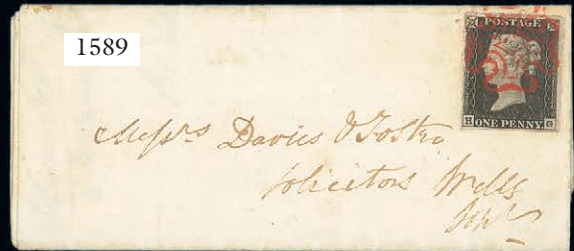 1589
POSTAGE
H ONE PENNY G
Messrs Davies & Foster
Solicitors Wells